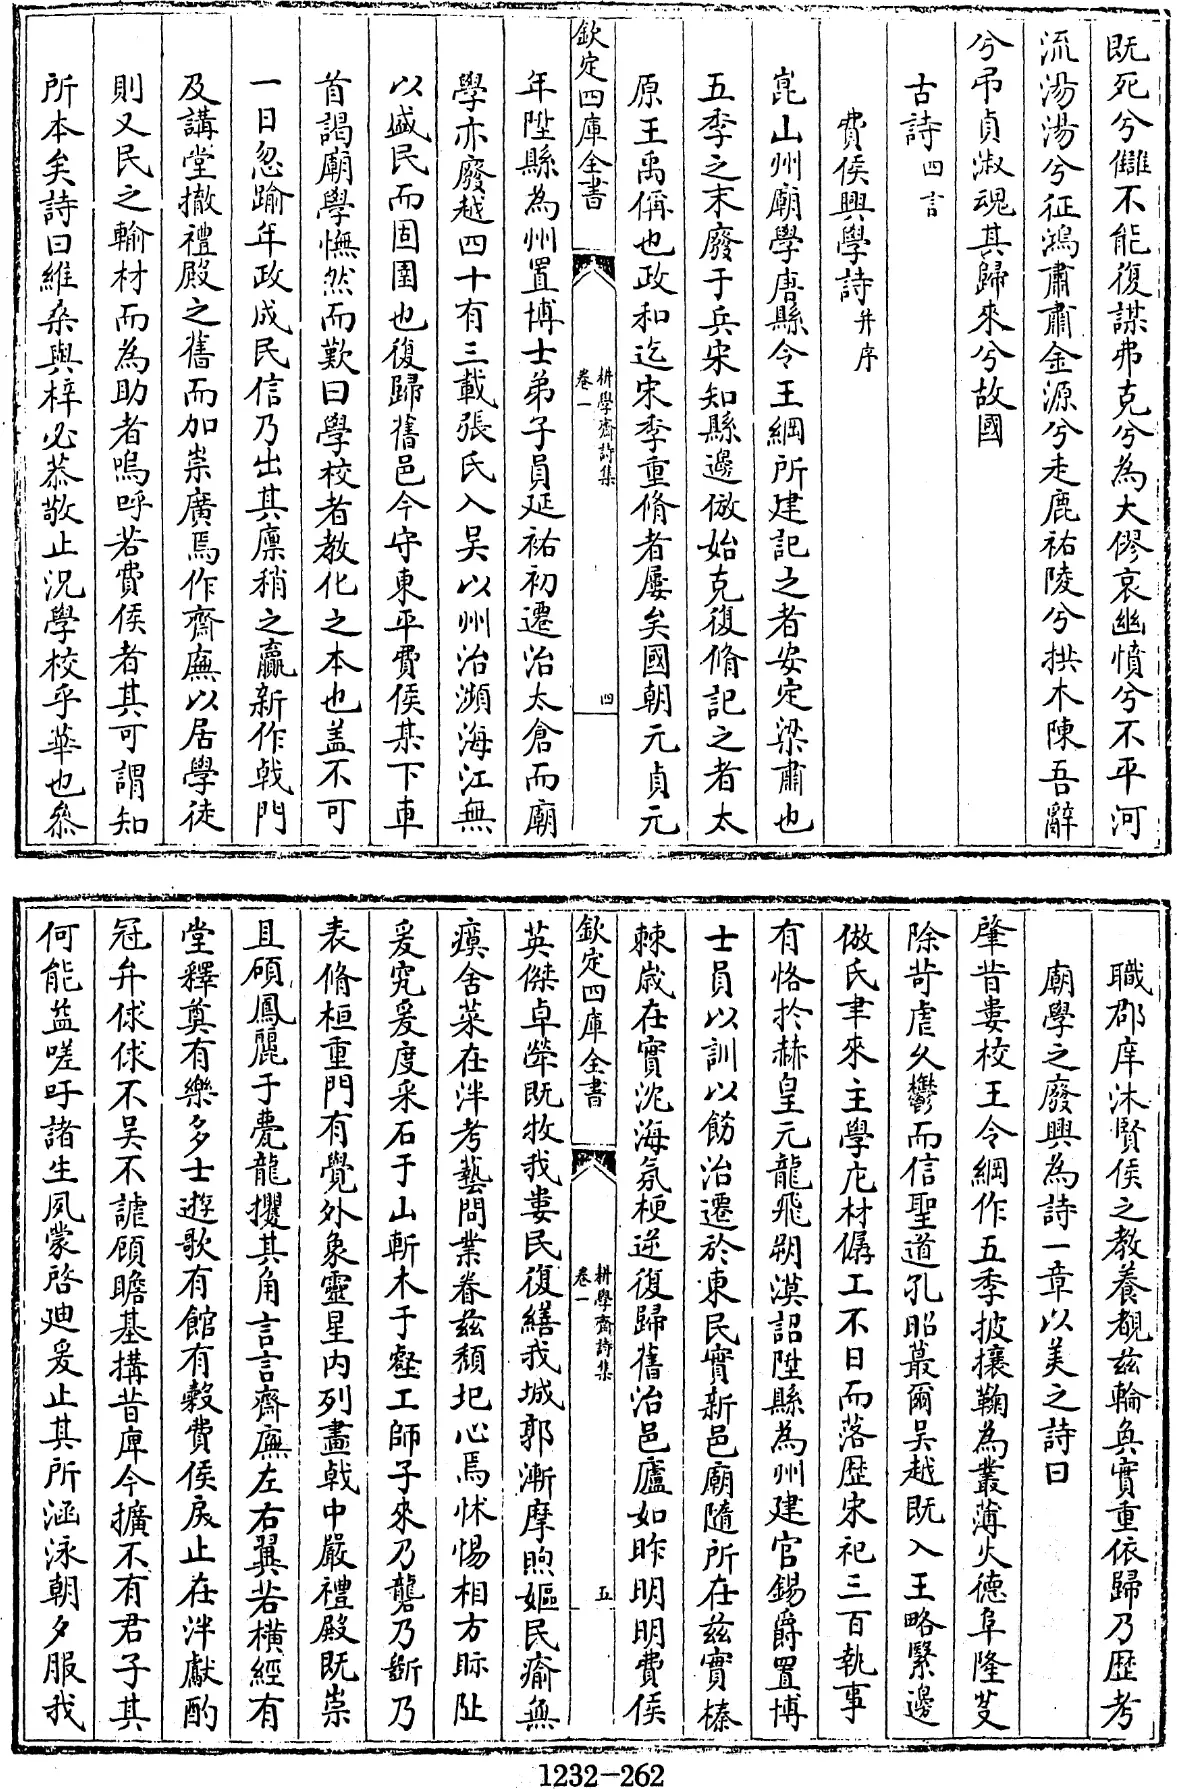 既死兮讎不能復謀弗克兮為大僇哀幽憤兮不平河
流湯湯兮征鴻肅肅金源兮走鹿祐陵兮拱木陳吾辭
兮弔貞淑魂其歸來兮故國
古詩四言
費侯興學詩并序
崑山州廟學唐縣令王綱所建記之者安定梁肅也
五季之末廢于兵宋知縣邊倣始克復脩記之者太
原王禹偁也政和迄宋季重脩者屢矣國朝元貞元
欽定四庫全書
耕學齋詩集
卷一
四
年陞縣為州置博士弟子員延祐初遷治太倉而廟
學亦廢越四十有三載張氏入吳以州治瀕海江無
以盛民而固圉也復歸舊邑今守東平費侯某下車
首謁廟學憮然而歎曰學校者教化之本也盖不可
一日忽踰年政成民信乃出其廪稍之贏新作戟門
及講堂撤禮殿之舊而加崇廣焉作齋廡以居學徒
則又民之輸材而為助者嗚呼若費侯者其可謂知
所本矣詩曰維桑與梓必恭敬止況學校乎華也忝
職郡庠沐賢侯之教養覩兹輪奐實重依歸乃歴考
廟學之廢興為詩一章以美之詩曰
肇昔婁校王令綱作五季披攘鞠為叢薄火德阜隆芟
除苛虐久鬱而信聖道孔昭蕞爾吳越既入王略繄邊
倣氏聿來主學庀材僝工不日而落歴宋祀三百執事
有恪於赫皇元龍飛朔漠詔陞縣為州建官錫爵置博
士員以訓以飭治遷於東民實新邑廟隨所在兹實榛
棘歲在實沈海氛梗逆復歸舊治邑廬如昨明明費侯
欽定四庫全書
耕學齋詩集
卷一
五
英傑卓犖既牧我婁民復繕我城郭漸摩煦嫗民瘉無
瘼舍菜在泮考藝問業眷兹頹圯心焉怵惕相方眎阯
爰究爰度采石于山斬木于壑工師子來乃礱乃斲乃
表脩桓重門有覺外象靈星内列畫戟中嚴禮殿既崇
且碩鳳麗于甍龍攫其角言言齋廡左右翼若横經有
堂釋奠有樂多士遊歌有館有糓費侯戾止在泮獻酌
冠弁俅俅不吴不謔顧瞻基搆昔庳今擴不有君子其
何能益嗟吁諸生夙蒙啓廸爰止其所涵泳朝夕服我
1232-262